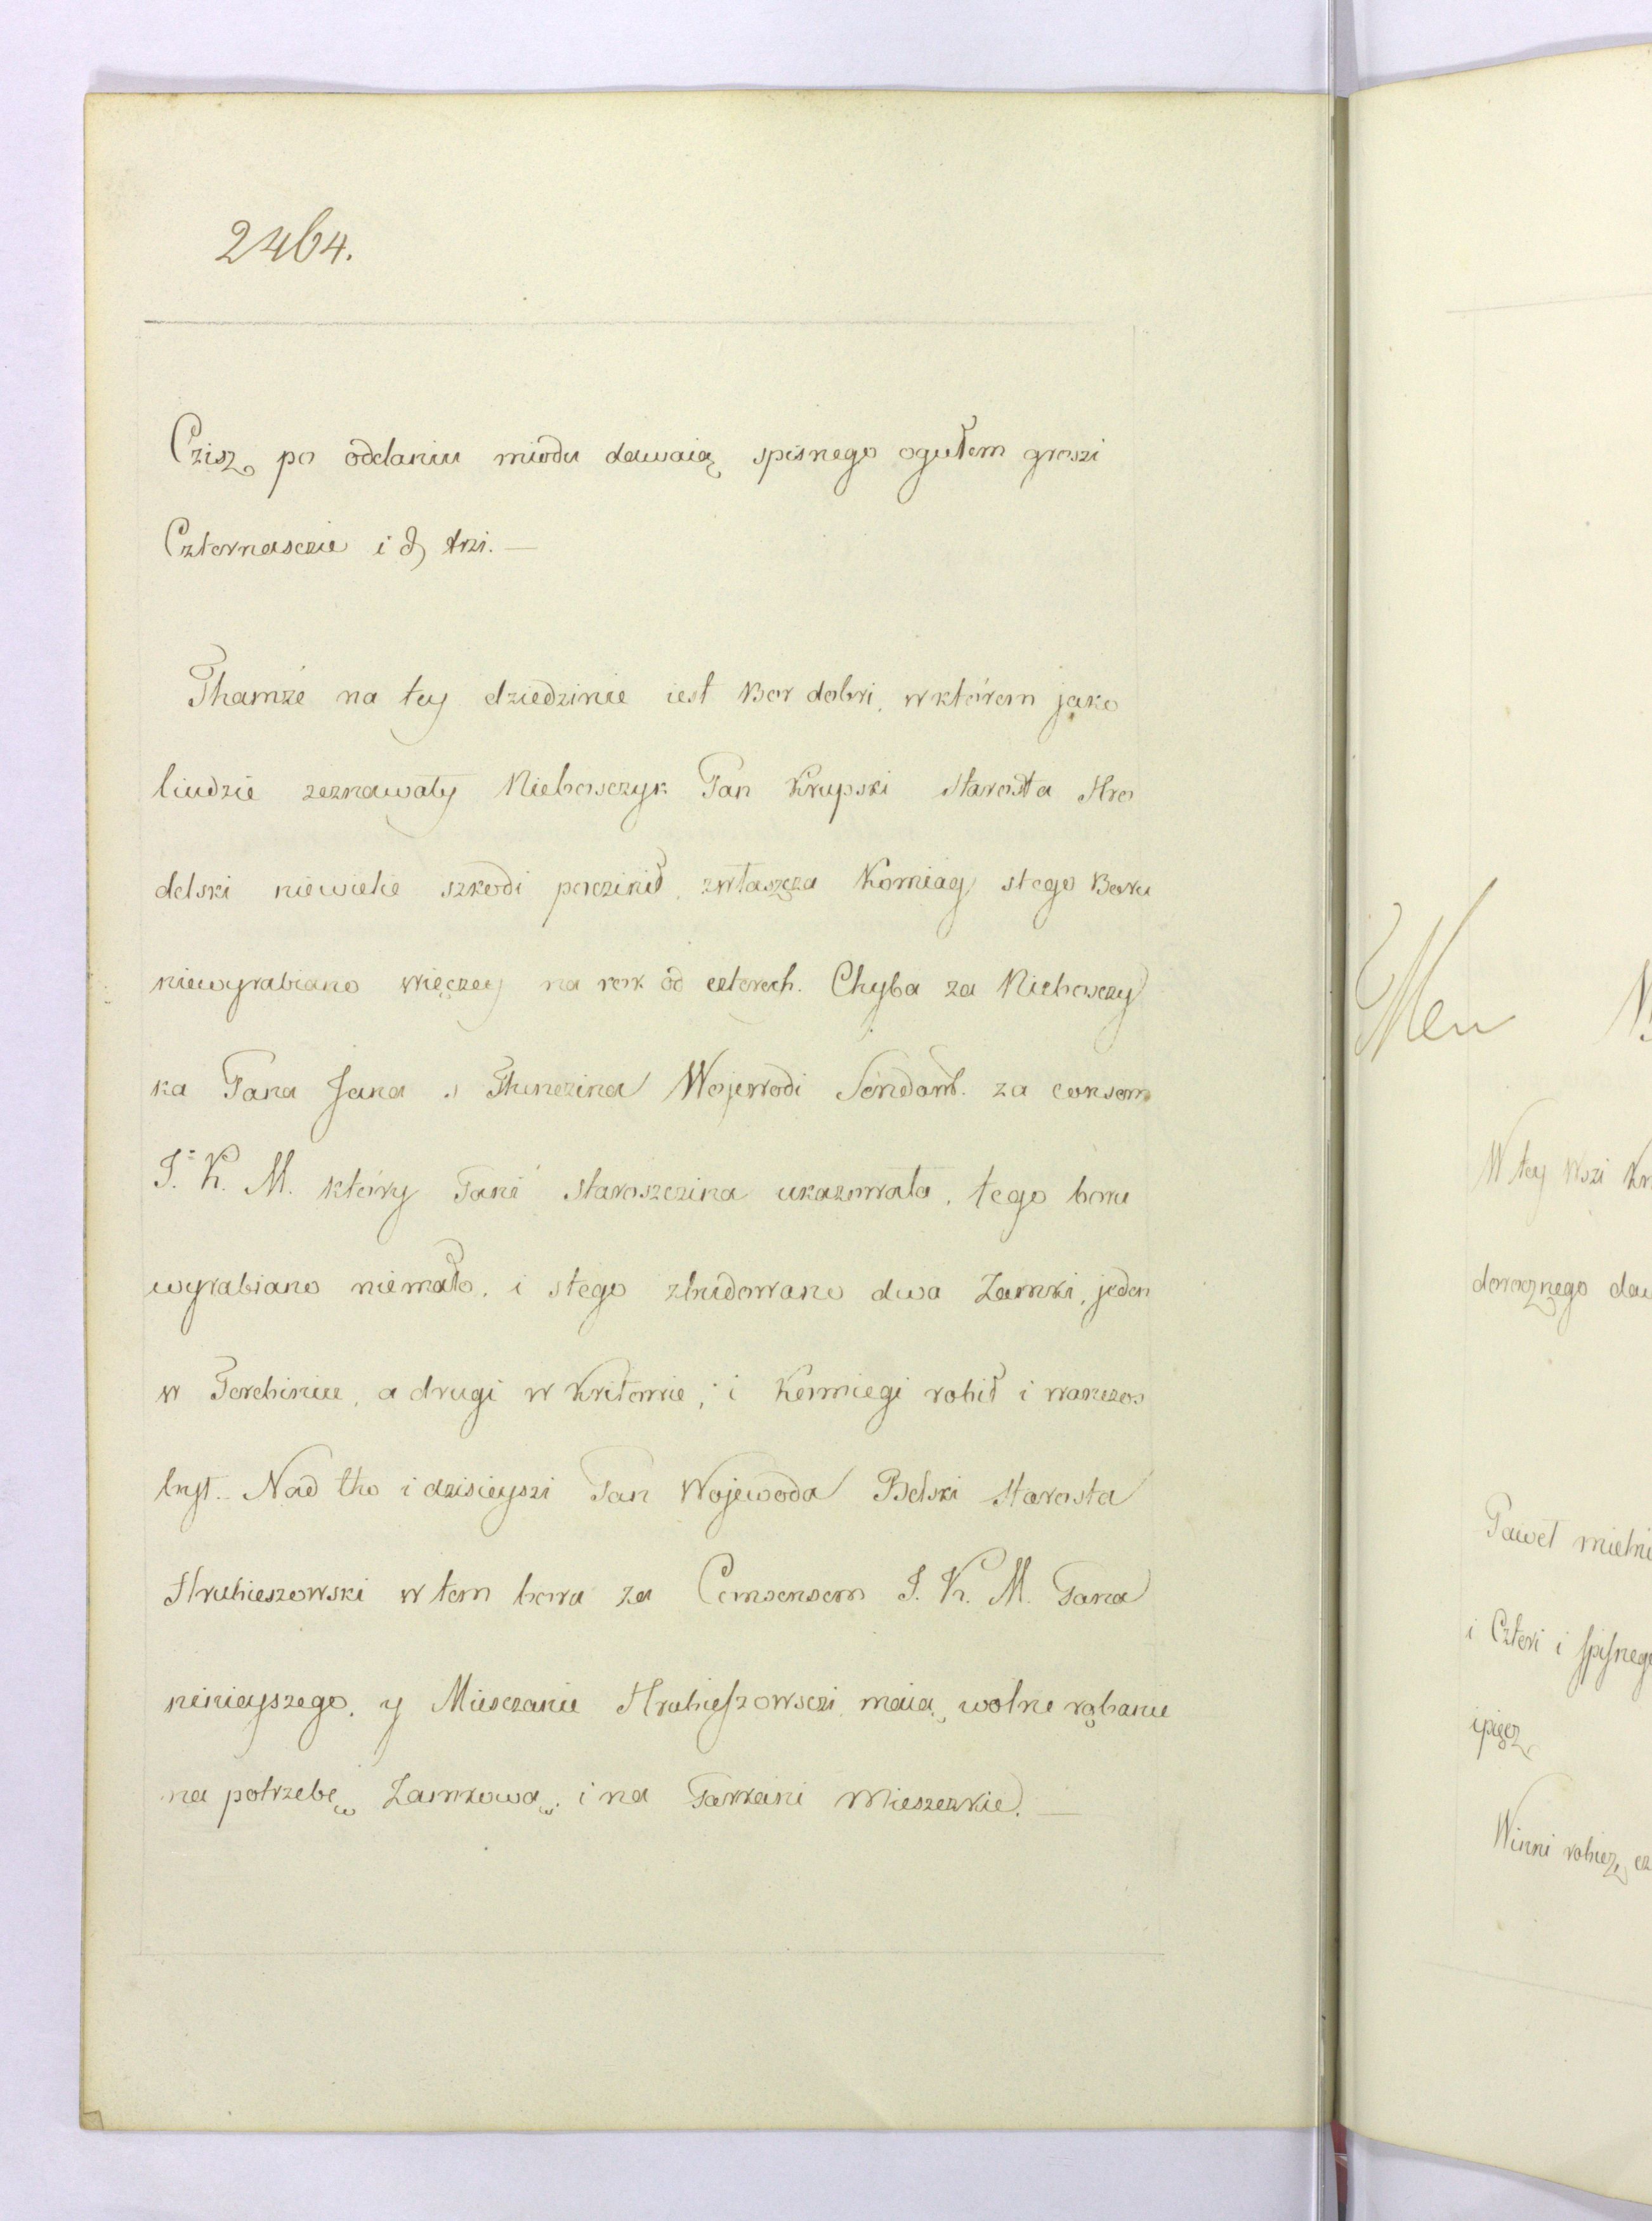 2464.
Czisz po oddaniu miodu dawaią spisnego ogułem groszi
Czternasczie i d trzi. —
Thamże na tey dziedzinie iest Bor dobri, w którem jako
liudzie zeznawały Niebosczyk Pan Krupski Starosta Hro
delski niewielie szkodi poczinił, zwłaszcza Komiag stego Boru
niewyrabiano więczey na rok od czterech. Chyba za Niebosczy
ka Pana Jana Thenczina Wojewodi Sendom. za consom
J. K. M. który Pani Staroszczina ukazowała, tego boru
wyrabiano niemało, i stego zbudowano dwa Zamki, jeden
w Torchiniu, a drugi w Kriłowie, i Komiegi robił i wanczos
był. Nad tho i dzisieyszi Pan Wojewoda Bełski Starosta
Hrubieszowski w tem boru za Consensem J. K. M. Pana
ninieyszego, y Miesczanie Hrubieszowsczi maią wolne rąbanie
na potrzebę Zamkową i na Parkani Mieszczkie. —
Men
W tey Wszi
dorocznego
Paweł
i Czteri i spisnego
ipięcz
Winni robicz